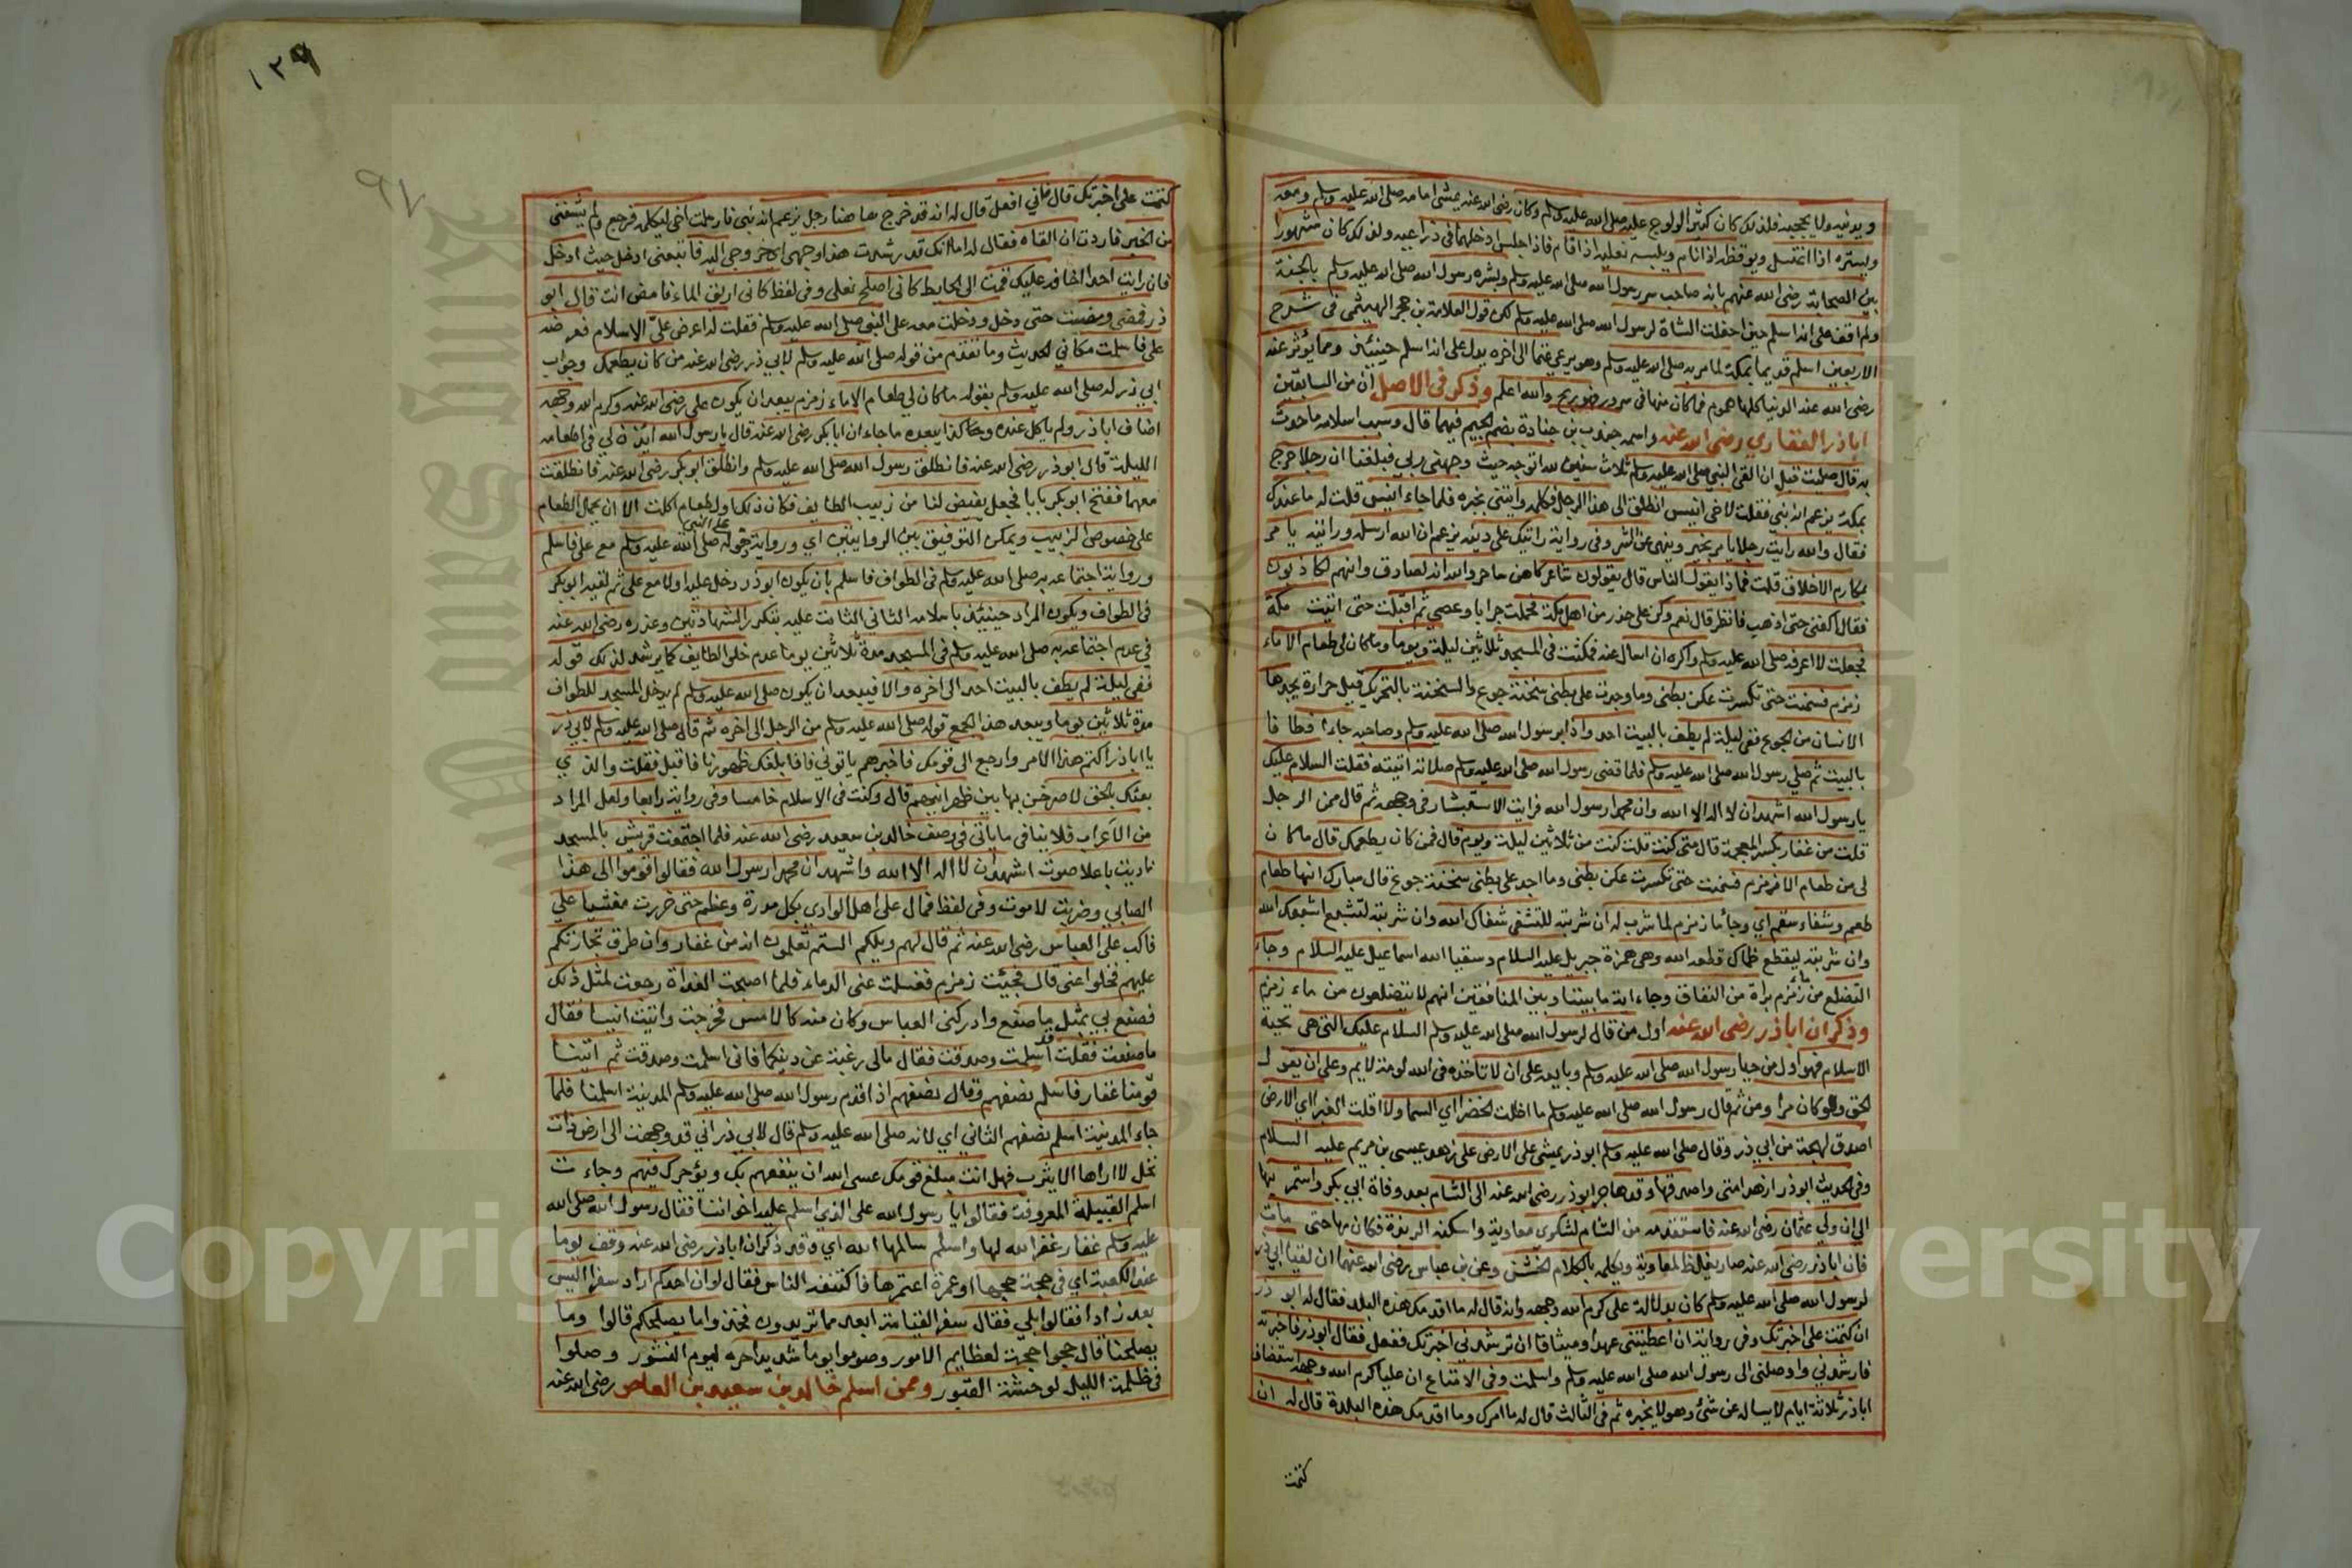 ويدنيه ولا يحجبه فلذلك كان كثير الولوج عليه صلى الله عليه وسلم وكان رضى الله عنه يمشى امامه صلى الله عليه وسلم ومعه
ويستره اذا اغتسل ويوقظه اذا نام ويلبسه نعليه اذا قام فاذا جلس ادخلهما فى ذراعيه ولذلك كان مشهورا
بين الصحابة رضى الله عنهم بانه صاحب سر رسول الله صلى الله عليه وسلم وبشره رسول الله صلى الله عليه وسلم بالجنة
ولم اقف على انه اسلم حين احفلت الشاة لرسول الله صلى الله عليه وسلم لكن قول العلامة بن حجر الهيثمى فى شرح
الاربعين اسلم قديما بمكة لما مر به صلى الله عليه وسلم وهو يرعى غنما الى اخره يدل على انه اسلم حينئذ ومما يؤثر عنه
رضى الله عنه الدنيا كلها هموم فما كان منها فى سرور فهو ربح والله اعلم وذكر فى الاصل ان من السابقين
اباذر الغفاري رضى الله عنه واسمه جندب بن جنادة بضم الجيم فيهما قال وسبب اسلامه ما حدث
به قال صليت قبل ان القى النبي صلى الله عليه وسلم ثلاث سنين لله اتوجه حيث وجهنى ربى فبلغنا ان رجلا خرج
بمكة يزعم انه نبي فقلت لاخى انيس انطلق الى هذا الرجل فكلمه وائتنى بخبره فلما جاء انيس قلت له ما عندك
فقال والله رايت رجلا يامر بخير وينهى عن الشر وفى رواية رايتك على دينه يزعم ان الله ارسله ورايته يامر
بمكارم الاخلاق قلت فما ذا يقول الناس قال يقولون شاعر كاهن ساحر والله انه لصادق وانهم لكاذبون
فقال اكفنى حتى اذهب فانظر قال نعم وكن على حذر من اهل مكة فحملت جرابا وعصى ثم اقبلت حتى اتيت مكة
فجعلت لا اعرفه صلى الله عليه وسلم واكره ان اسال عنه فمكثت فى المسجد ثلاثين ليلة ويوما وما كان لى طعام الا ماء
زمزم فسمنت حتى تكسرت عكن بطنى وما وجدت على بطنى سخنة جوع والسخنة بالتحريك قيل حرارة يجدها
الانسان من الجوع ففى ليلة لم يطف بالبيت احد واذا برسول الله صلى الله عليه وسلم وصاحبه جاءا فطافا
بالبيت ثم صلى رسول الله صلى الله عليه وسلم فلما قضى رسول الله صلى الله عليه وسلم صلاته اتيته فقلت السلام عليك
يارسول الله اشهد ان لا اله الا الله وان محمدا رسول الله فرايت الاستبشار فى وجهه ثم قال من الرجل
قلت من غفار بكسر المعجمة قال متى كنت قلت كنت من ثلاثين ليلة ويوم قال فمن كان يطعمك قال ما كان
لى من طعام الا زمزم فسمنت حتى تكسرت عكن بطنى وما اجد على بطنى سخنة جوع قال مبارك انها طعام
طعم وشفاء سقم اي وجا ماء زمزم لما شرب له ان شربته للتشفى شفاك الله وان شربته لتشبع اشبعك الله
وان شربته ليقطع ظماك قطعه الله وهى همزة جبريل عليه السلام وسقيا الله اسماعيل عليه السلام وجاء
التضلع من ماء زمزم براة من النفاق وجاء اية ما بيننا وبين المنافقين انهم لا يتضلعون من ماء زمزم
وذكر ان اباذر رضى الله عنه اول من قال لرسول الله صلى الله عليه وسلم السلام عليك التى هى تحية
الاسلام فهو اول من حيا رسول الله صلى الله عليه وسلم وبايعه على ان لا تاخذه فى الله لومة لايم وعلى ان يقول
الحق ولو كان مرا ومن ثم قال رسول الله صلى الله عليه وسلم ما اظلت الخضرا اي السما ولا اقلت الغبرا اي الارض
اصدق لهجة من ابي ذر وقال صلى الله عليه وسلم ابو ذر يمشى على الارض على زهد عيسى بن مريم عليه السلام
وفى الحديث ابو ذر ازهد امتى واصدقها وقد هاجر ابوذر رضى الله عنه الى الشام بعد وفاة ابي بكر واستمر بها
الى ان ولى عثمان رضى الله عنه فاستقدمه من الشام لشكوى معاوية واسكنه الربذة فكان بها حتى مات
فان اباذر رضى الله عنه صار يغلظ لمعاوية ويكلمه بالكلام الخشن وعن بن عباس رضى الله عنهما ان لقيا ابي ذر
لرسول الله صلى الله عليه وسلم كان بدلالة على كرم الله وجهه وانه قال له ما اقدمك هذه البلد فقال له ابو ذر
ان كتمت على اخبرتك وفى رواية ان اعطيتنى عهدا وميثاقا ان ترشدنى اخبرتك ففعل فقال ابوذر فاخبرته
فارشدنى واوصلنى الى رسول الله صلى الله عليه وسلم واسلمت وفى الامتاع ان عليا كرم الله وجهه استضاف
اباذر ثلاثة ايام لا يساله عن شئ وهو لا يخبره ثم فى الثالث قال له ما امرك وما اقدمك هذه البلدة قال له ان
كتمت
١٢٩
٩٧
كتمت على اخبرتك قال فاني افعل قال له انه قد خرج هاهنا رجل يزعم انه نبى فارسلت اخى ليكلمه فرجع ولم يشفنى
من الخبر فاردت ان القاه فقال له اما انك قد رشدت هذا وجهى اي خروجى اليه فاتبعنى ادخل حيث ادخل
فان رايت احدا اخافه عليك قمت الى الحايط كانى اصلح نعلى وفى لفظ كانى اريق الماء فامض انت قال ابو
ذر فمضى ومضيت حتى دخل ودخلت معه على النبى صلى الله عليه وسلم فقلت له اعرض علىّ الاسلام فعرضه
على فاسلمت مكاني الحديث وما تقدم من قوله صلى الله عليه وسلم لابي ذر رضى الله عنه من كان يطعمك وجواب
ابي ذر له صلى الله عليه وسلم بقوله ما كان لي طعام الا ماء زمزم يبعد ان يكون على رضى الله عنه وكرم الله وجهه
اضاف اباذر ولم ياكل عنده وهكذا يبعده ما جاء ان ابا بكر رضى الله عنه قال يا رسول الله ايذن لي فى اطعامه
الليلة قال ابوذر رضى الله عنه فانطلق رسول الله صلى الله عليه وسلم وانطلق ابو بكر رضى الله عنه فانطلقت
معهما ففتح ابو بكر بابا فجعل يقبض لنا من زبيب الطايف فكان ذلك اول طعام اكلت الا ان يحمل الطعام
على خصوص الزبيب ويمكن التوفيق بين الروايتين اي ورواية دخوله على النبى صلى الله عليه وسلم مع على فاسلم
ورواية اجتماعه به صلى الله عليه وسلم فى الطواف فاسلم بان يكون ابوذر دخل عليه اولا مع على ثم لقيه ابو بكر
فى الطواف ويكون المراد حينئذ باسلامه الثاني الثابت عليه بتكرر الشهادتين وعذره رضى الله عنه
في عدم اجتماعه به صلى الله عليه وسلم فى المسجد مدة ثلاثين يوما عدم خلو الطايف كما يرشد لذلك قوله
ففى ليلة لم يطف بالبيت احد الى اخره والا فيبعد ان يكون صلى الله عليه وسلم لم يدخل المسجد للطواف
مدة ثلاثين يوما ويبعد هذا الجمع قوله صلى الله عليه وسلم من الرجل الى اخره ثم قال صلى الله عليه وسلم لابي ذر
يا اباذر اكتم هذا الامر وارجع الى قومك فاخبرهم ياتونى فاذا بلغك ظهورنا فاقبل فقلت والذي
بعثك بالحق لاصرخن بها بين ظهرانيهم قال وكنت فى الاسلام خامسا وفى رواية رابعا ولعل المراد
من الاعراب فلا ينافى ما ياتى فى وصف خالد بن سعيد رضى الله عنه فلما اجتمعت قريش بالمسجد
ناديت باعلا صوت اشهد ان لا اله الا الله واشهد ان محمدا رسول الله فقالوا قوموا الى هذا
الصابي وضربت لاموت وفى لفظ فمال على اهل الوادى بكل مدرة وعظم حتى خررت مغشيا علي
فاكب على العباس رضى الله عنه ثم قال لهم ويلكم الستم تعلمون انه من غفار وان طرق تجارتكم
عليهم فخلوا عنى قال فجئيت زمزم فغسلت عنى الدماء فلما اصبحت الغداة رجعت لمثل ذلك
فصنع بي مثل ما صنع وادركنى العباس وكان منه كالامس فخرجت واتيت انيسا فقال
ما صنعت فقلت قد اسلمت وصدقت فقال مالى رغبة عن دينكما فانى اسلمت وصدقت ثم اتينا
قومنا غفار فاسلم نصفهم وقال نصفهم اذا قدم رسول الله صلى الله عليه وسلم المدينة اسلمنا فلما
جاء المدينة اسلم نصفهم الثانى اي لانه صلى الله عليه وسلم قال لابي ذر انى قد وجهت الى ارض ذات
نخل لا اراها الا يثرب فهل انت مبلغ قومك عسى الله ان ينفعهم بك ويؤجرك فيهم وجاءت
اسلم القبيلة المعروفة فقالوا يا رسول الله على الذى اسلم عليه اخواننا فقال رسول الله صلى الله
عليه وسلم غفار غفر الله لها واسلم سالمها الله اي وقد ذكر ان اباذر رضى الله عنه وقف يوما
عند الكعبة اي فى حجة حجها او عمرة اعتمرها فاكتنفه الناس فقال لو ان احدكم اراد سفرا اليس
يعد زادا فقالوا بلي فقال سفر القيامة ابعد مما تريدون فخذوا ما يصلحكم قالوا وما
يصلحنا قال حجوا حجة لعظايم الامور وصوموا يوما شديدا حره ليوم النشور وصلوا
فى ظلمة الليل لوحشة القبور وممن اسلم خالد بن سعيد بن العاص رضى الله عنه